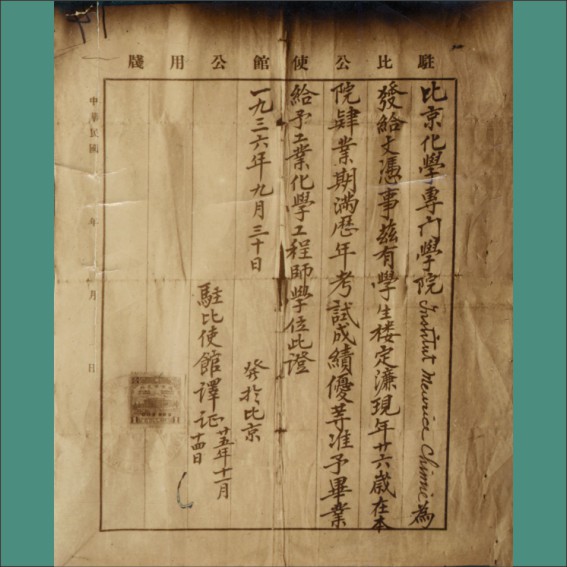 駐比公使館公用牋
比京化學專门學院 Institut Meurice Chimie 為
發給文憑事茲有學生楼定濂現年廿六歲在本
院肄業期滿歷年考試成績優等准予畢業
給予工業化學工程師學位此證
一九三六年九月三十日
發於比京
駐比使館譯证
廿五年十一月
十四日
中華民國 年 月 日